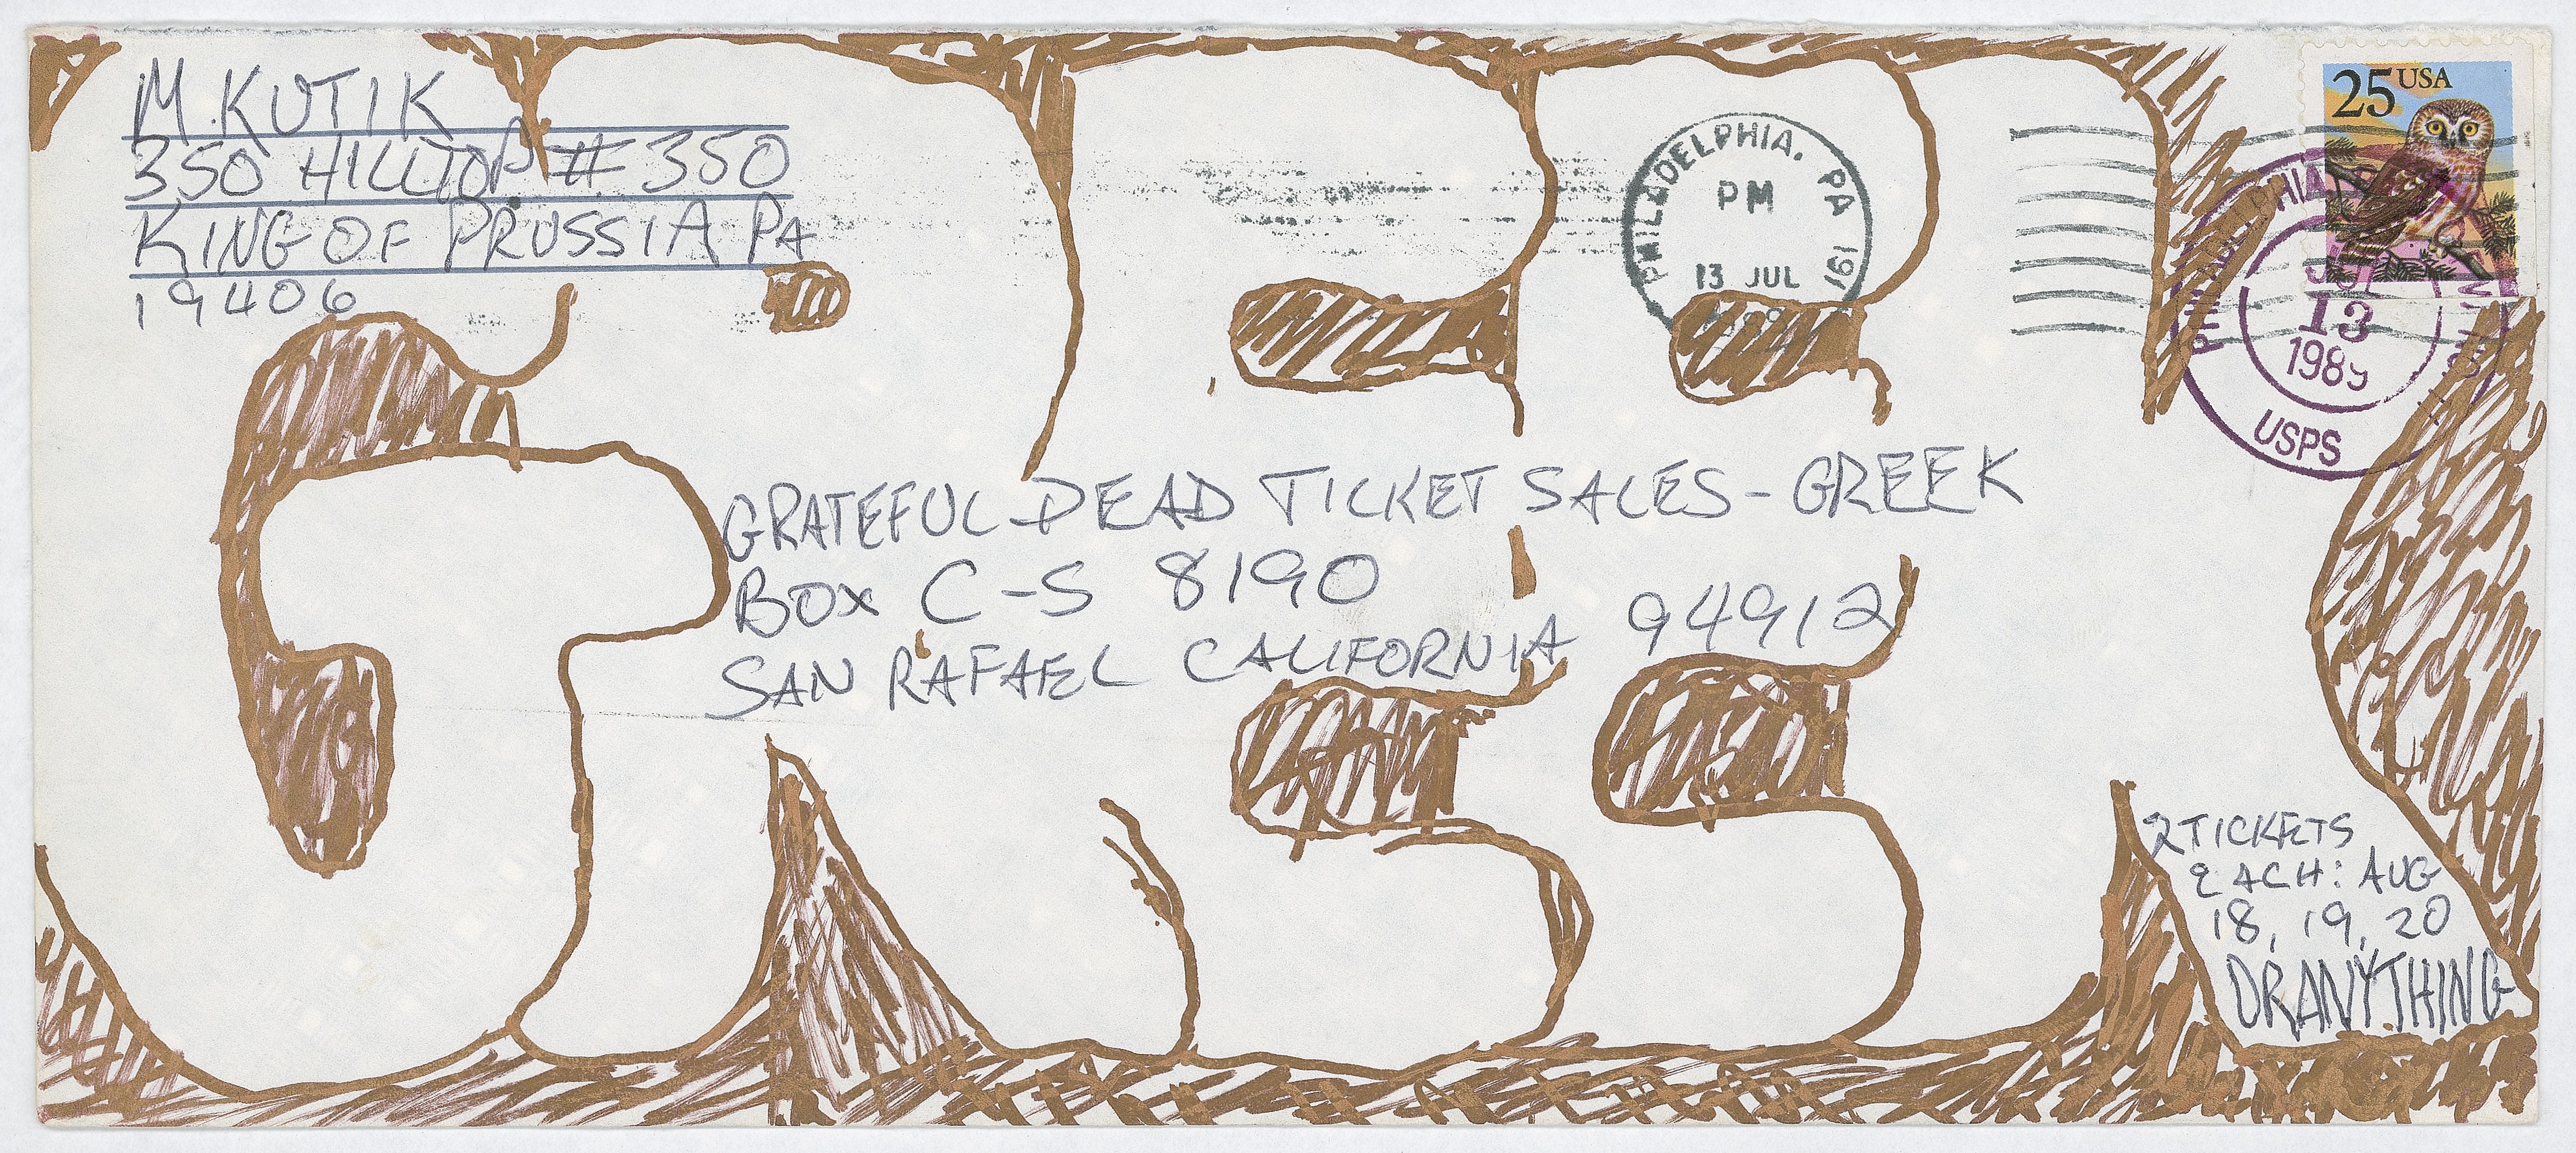 M. KUTIK
350 HILLTOP # 350
KING OF PRUSSIA PA
19406
PHILADELPHIA, PA 191
PM
13 JUL
25 USA
13
1989
USPS
GREEK
GRATEFUL DEAD TICKET SALES - GREEK
BOX C-S 8190
SAN RAFAEL CALIFORNIA 94912
2 TICKETS
EACH: AUG
18, 19, 20
OR ANYTHING